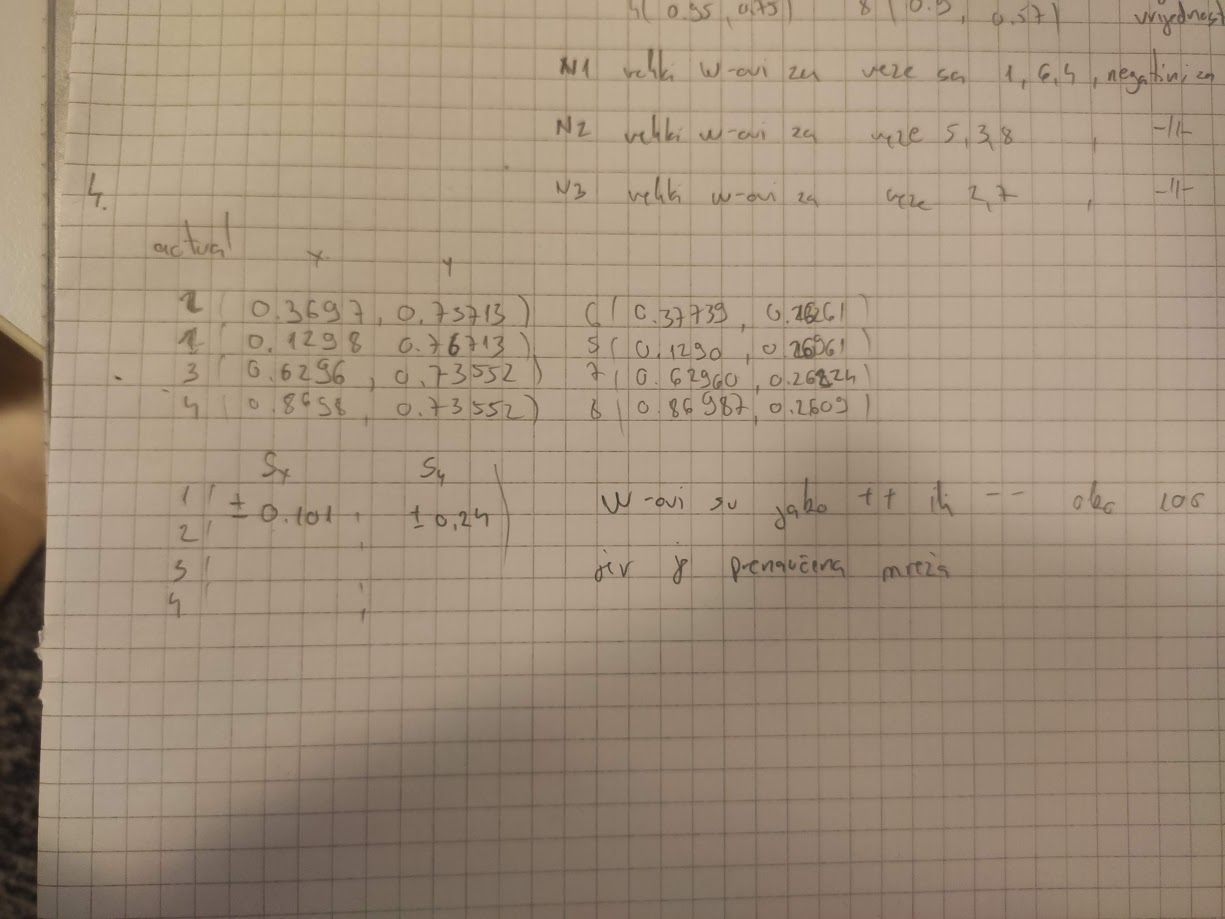 4( 0.95, 0,75) 8 ( 0.9, 0.57) vrijednost
N1 veliki w-ovi za veze sa 1, 6,4, negativni za
N2 veliki w-ovi za veze 5, 3,8 , -||-
4. N3 veliki w-ovi za veze 2,7 , -||-
actual x y
2( 0.3697, 0.73713) 6( 0.37739,
1( 0.1298 0.76713) 5( 0.1290, 0.26961)
3( 0.6296, 0.73552) 7( 0.62960, 0.26824)
4( 0.8698, 0.73552) 8( 0.86987, 0.2609)
Sx Sy
1( ± 0.101, ± 0,24)
2( ,
3(
4 ,
W-ovi su jako ++ ili -- oko 100
jer je prenaučena mreža